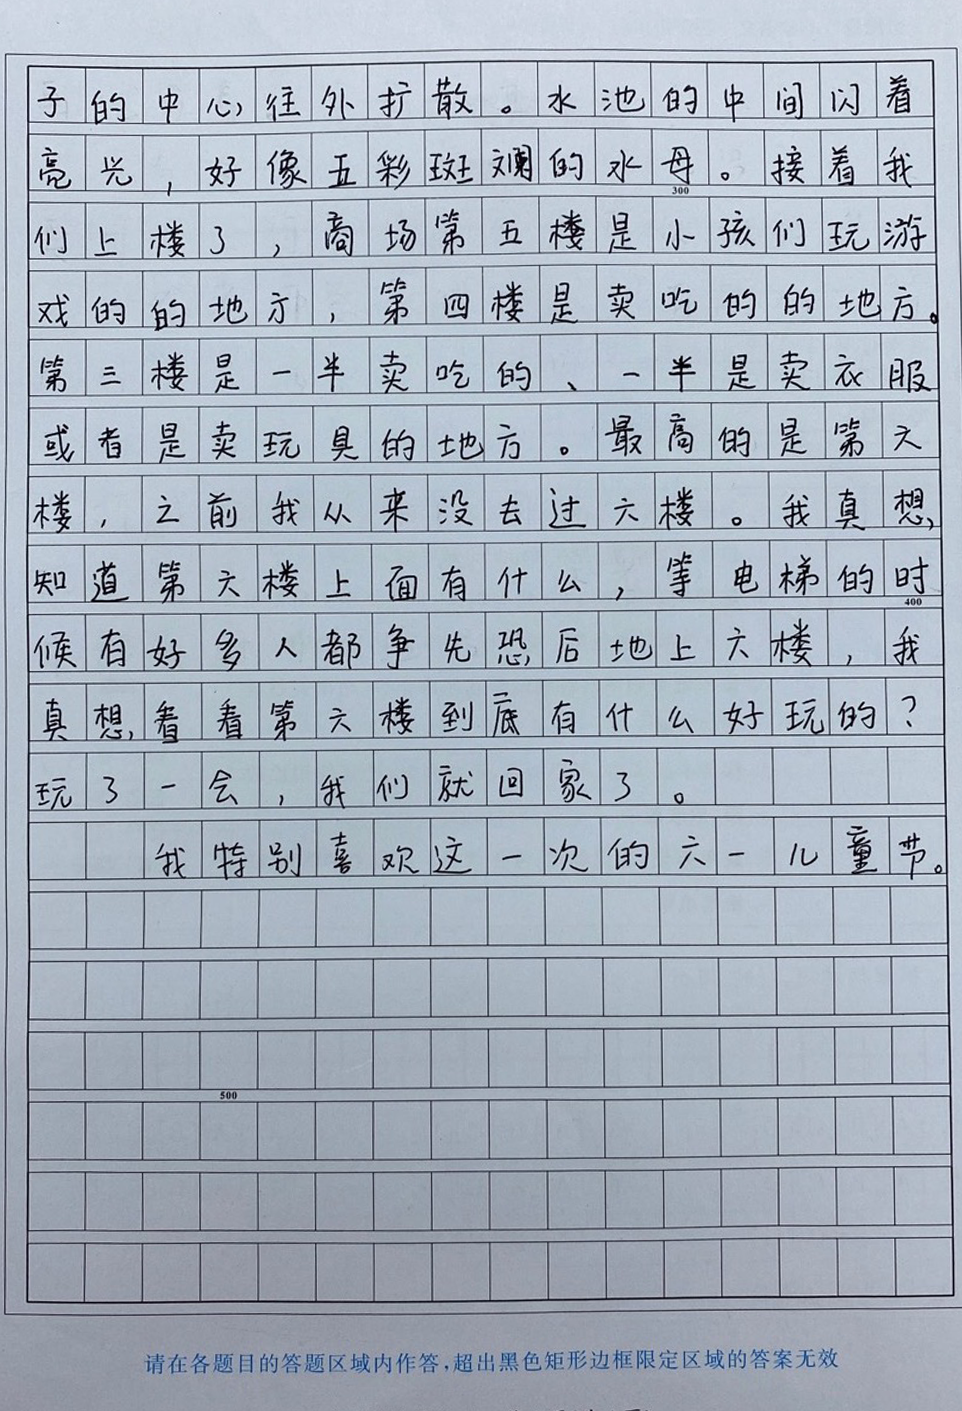 子的中心往外扩散。水池的中间闪着
亮光，好像五彩斑斓的水母。接着我
300
们上楼了，商场第五楼是小孩们玩游
戏的的地方，第四楼是卖吃的的地方。
第三楼是一半卖吃的、一半是卖衣服
或者是卖玩具的地方。最高的是第六
楼，之前我从来没去过六楼。我真想
知道第六楼上面有什么，等电梯的时
400
候有好多人都争先恐后地上六楼，我
真想看看第六楼到底有什么好玩的？
玩了一会，我们就回家了。
我特别喜欢这一次的六一儿童节。
500
请在各题目的答题区域内作答，超出黑色矩形边框限定区域的答案无效